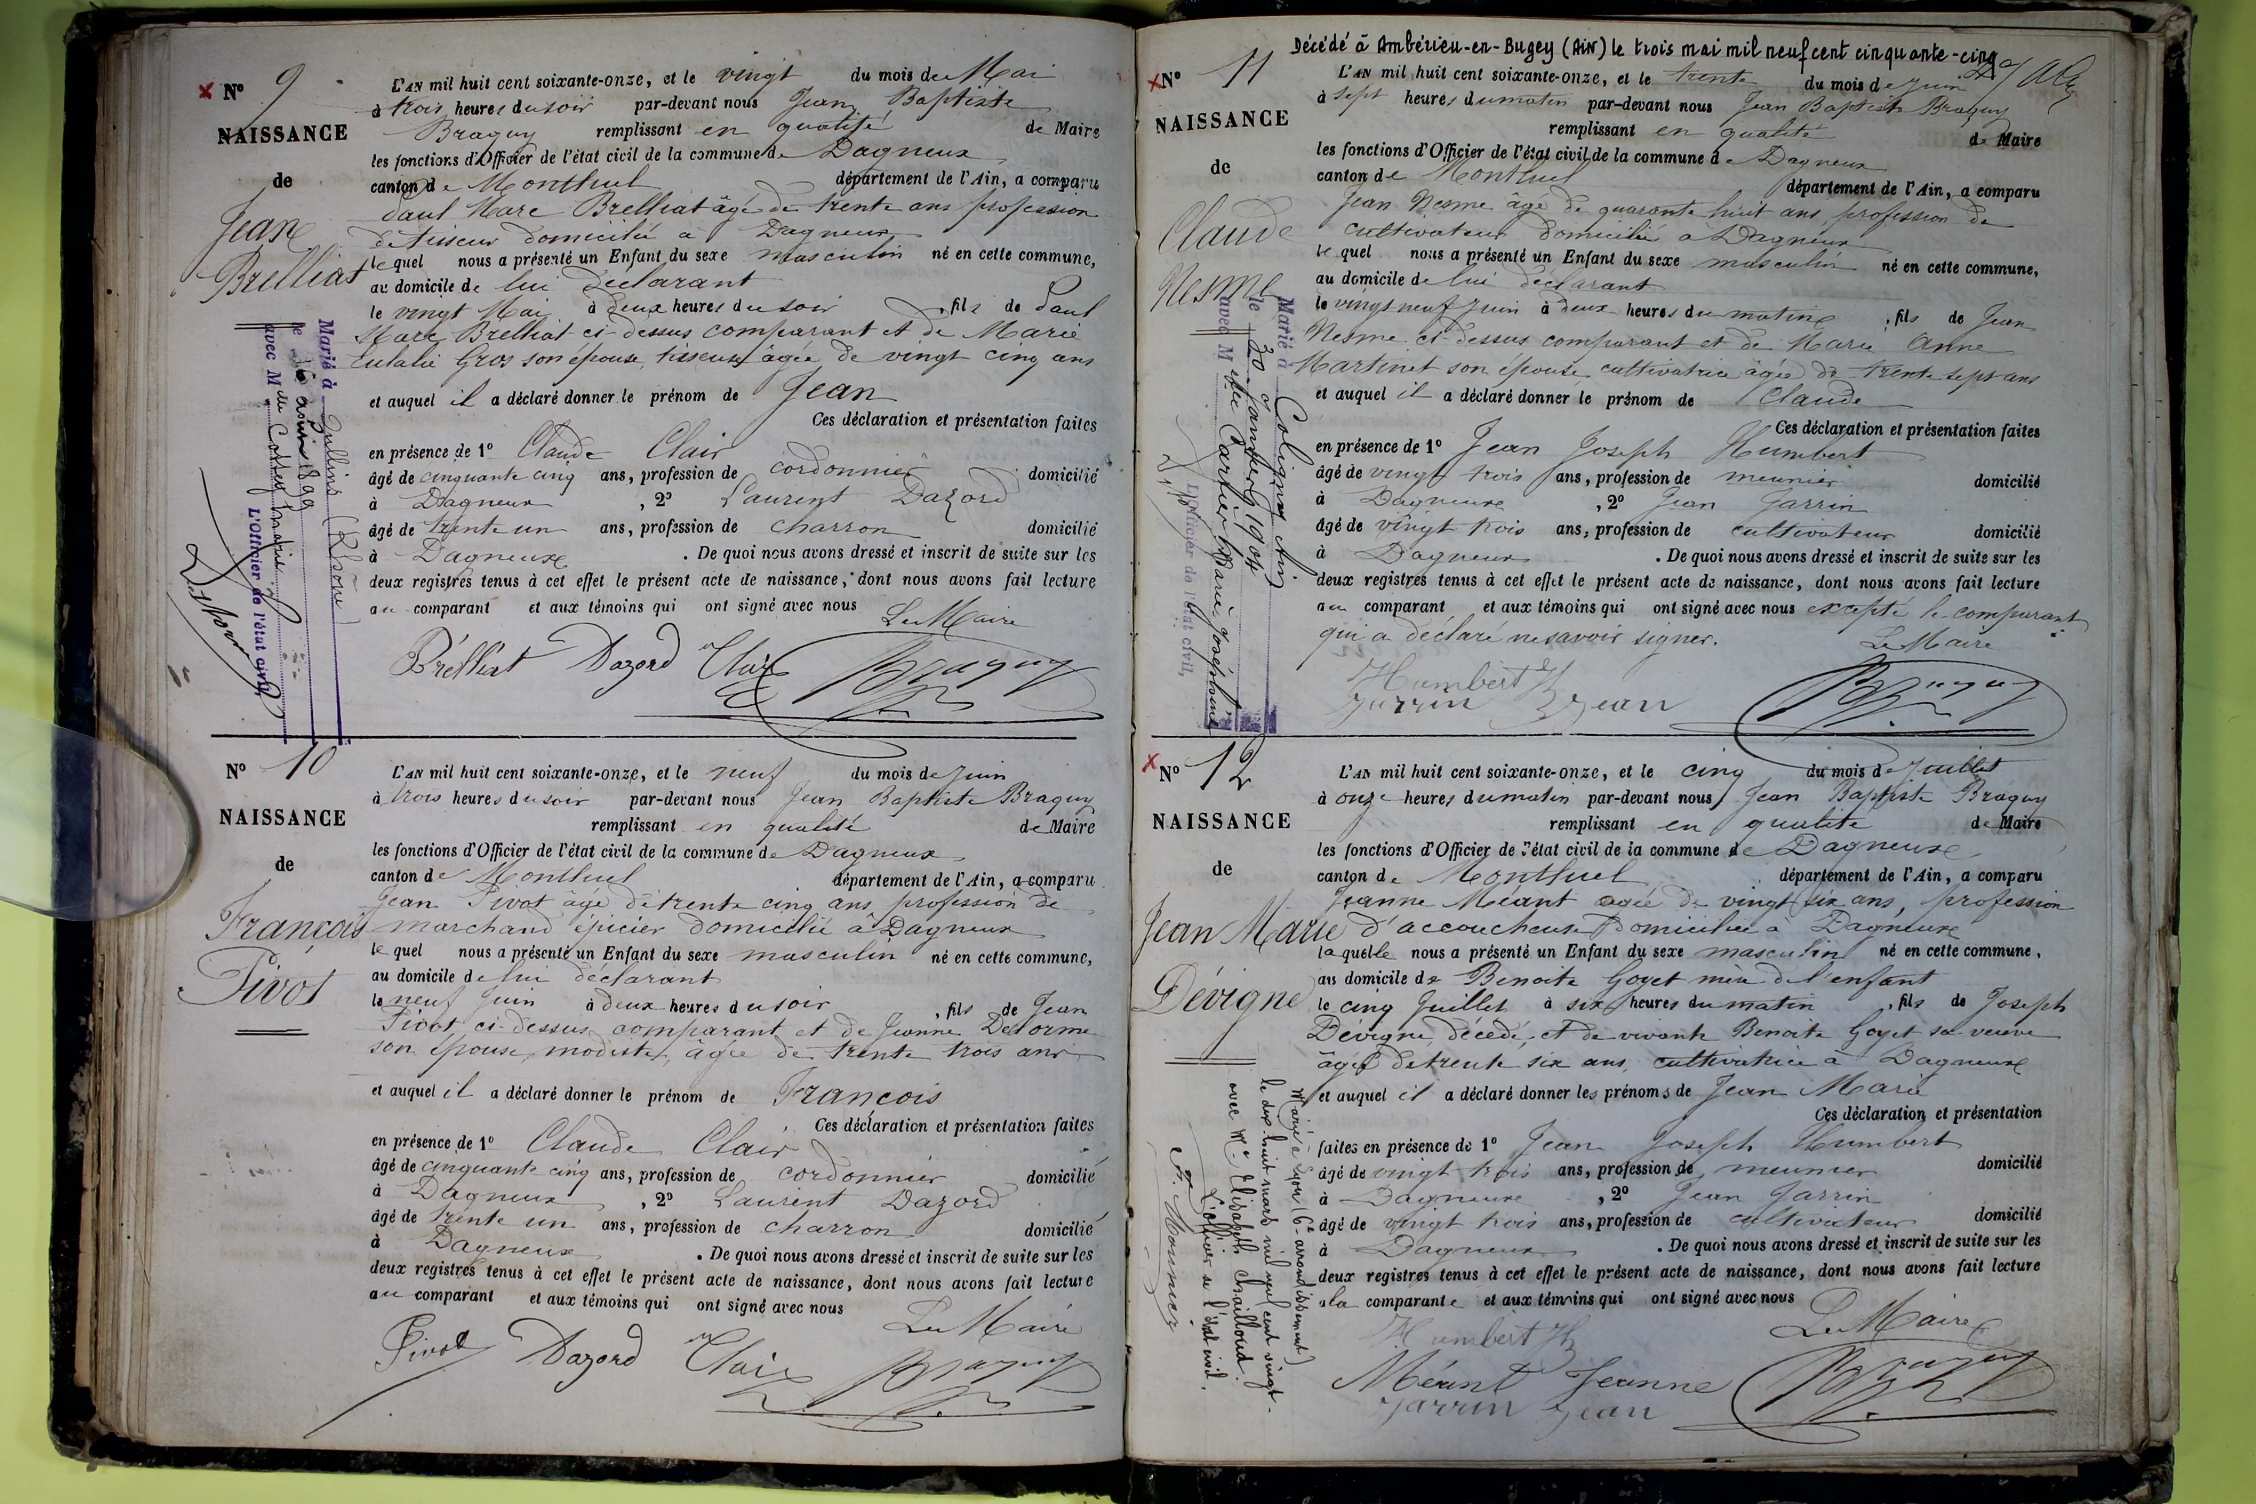 N° 9
NAISSANCE
de
Jean
Brelliat
L'AN mil huit cent soixante-onze, et le vingt du mois de Mai
à trois heures du soir par-devant nous Jean Baptiste
Braguy remplissant en qualité de Maire
les fonctions d'Officier de l'état civil de la commune de Dagneux
canton de Montluel département de l'Ain, a comparu
Paul Marc Brelliat âgé de trente ans profession
de tisseur domicilié à Dagneux
lequel nous a présenté un Enfant du sexe masculin né en cette commune,
au domicile de lui déclarant
le vingt Mai à deux heures du soir, fils de Paul
Marc Brelliat ci-dessus comparant et de Marie
Eulalie Gros son épouse, tisseuse, âgée de vingt cinq ans
et auquel il a déclaré donner le prénom de Jean
Ces déclaration et présentation faites
en présence de 1° Claude Clair
âgé de cinquante cinq ans, profession de cordonnier domicilié
à Dagneux, 2° Laurent Dazord
âgé de trente un ans, profession de charron domicilié
à Dagneux. De quoi nous avons dressé et inscrit de suite sur les
deux registres tenus à cet effet le présent acte de naissance, dont nous avons fait lecture
au comparant et aux témoins qui ont signé avec nous
Le Maire
Brelliat Dazord Clair Braguy
Marié à Oullins (Rhône)
le 26 août 1899
avec Mlle Cottey Marie
L'Officier de l'état civil,
N° 10
NAISSANCE
de
François
Pivot
L'AN mil huit cent soixante-onze, et le neuf du mois de Juin
à trois heures du soir par-devant nous Jean Baptiste Braguy
remplissant en qualité de Maire
les fonctions d'Officier de l'état civil de la commune de Dagneux
canton de Montluel département de l'Ain, a comparu
Jean Pivot âgé de trente cinq ans profession de
marchand épicier domicilié à Dagneux
lequel nous a présenté un Enfant du sexe masculin né en cette commune,
au domicile de lui déclarant
le neuf Juin à deux heures du soir, fils de Jean
Pivot ci-dessus comparant et de Jeanne Delorme
son épouse, modiste, âgée de trente trois ans
et auquel il a déclaré donner le prénom de François
Ces déclaration et présentation faites
en présence de 1° Claude Clair
âgé de cinquante cinq ans, profession de cordonnier domicilié
à Dagneux, 2° Laurent Dazord
âgé de trente un ans, profession de charron domicilié
à Dagneux. De quoi nous avons dressé et inscrit de suite sur les
deux registres tenus à cet effet le présent acte de naissance, dont nous avons fait lecture
au comparant et aux témoins qui ont signé avec nous
Le Maire
Pivot Dazord Clair Braguy
Décédé à Ambérieu-en-Bugey (Ain) le trois mai mil neuf cent cinquante-cinq
N° 11
NAISSANCE
de
Claude
Nesme
L'AN mil huit cent soixante-onze, et le trente du mois de Juin
à sept heures du matin par-devant nous Jean Baptiste Braguy
remplissant en qualité de Maire
les fonctions d'Officier de l'état civil de la commune de Dagneux
canton de Montluel département de l'Ain, a comparu
Jean Nesme âgé de quarante huit ans profession de
cultivateur domicilié à Dagneux
lequel nous a présenté un Enfant du sexe masculin né en cette commune,
au domicile de lui déclarant
le vingt neuf Juin à deux heures du matin, fils de Jean
Nesme ci-dessus comparant et de Marie Anne
Martinet son épouse cultivatrice âgée de trente sept ans
et auquel il a déclaré donner le prénom de Claude
Ces déclaration et présentation faites
en présence de 1° Jean Joseph Humbert
âgé de vingt trois ans, profession de meunier domicilié
à Dagneux, 2° Jean Jarrin
âgé de vingt trois ans, profession de cultivateur domicilié
à Dagneux. De quoi nous avons dressé et inscrit de suite sur les
deux registres tenus à cet effet le présent acte de naissance, dont nous avons fait lecture
au comparant et aux témoins qui ont signé avec nous excepté le comparant
qui a déclaré ne savoir signer.
Le Maire
Humbert
Jarrin Jean Braguy
Marié à Coligny Ain
le 30 janvier 1904
avec Mlle Cartier Marie Joséphine
L'Officier de l'état civil,
N° 12
NAISSANCE
de
Jean Marie
Dévigne
L'AN mil huit cent soixante-onze, et le cinq du mois de Juillet
à onze heures du matin par-devant nous Jean Baptiste Braguy
remplissant en qualité de Maire
les fonctions d'Officier de l'état civil de la commune de Dagneux
canton de Montluel département de l'Ain, a comparu
Jeanne Méant agée de vingt six ans, profession
d'accoucheuse domiciliée à Dagneux
laquelle nous a présenté un Enfant du sexe masculin né en cette commune,
au domicile de Benoite Goyet mère de l'enfant
le cinq Juillet à six heures du matin, fils de Joseph
Dévigne, décédé, et de vivante Benoite Goyet sa veuve
âgée de trente six ans, cultivatrice à Dagneux
et auquel il a déclaré donner les prénoms de Jean Marie
Ces déclaration et présentation
faites en présence de 1° Jean Joseph Humbert
âgé de vingt trois ans, profession de meunier domicilié
à Dagneux, 2° Jean Jarrin
âgé de vingt trois ans, profession de cultivateur domicilié
à Dagneux. De quoi nous avons dressé et inscrit de suite sur les
deux registres tenus à cet effet le présent acte de naissance, dont nous avons fait lecture
à la comparante et aux témoins qui ont signé avec nous
Le Maire
Humbert
Méant Jeanne
Jarrin Jean Braguy
Marié à Lyon (6e arrondissement)
le dix huit mars mil neuf cent vingt.
avec Me Elisabeth Chailloud.
L'officier de l'état civil,